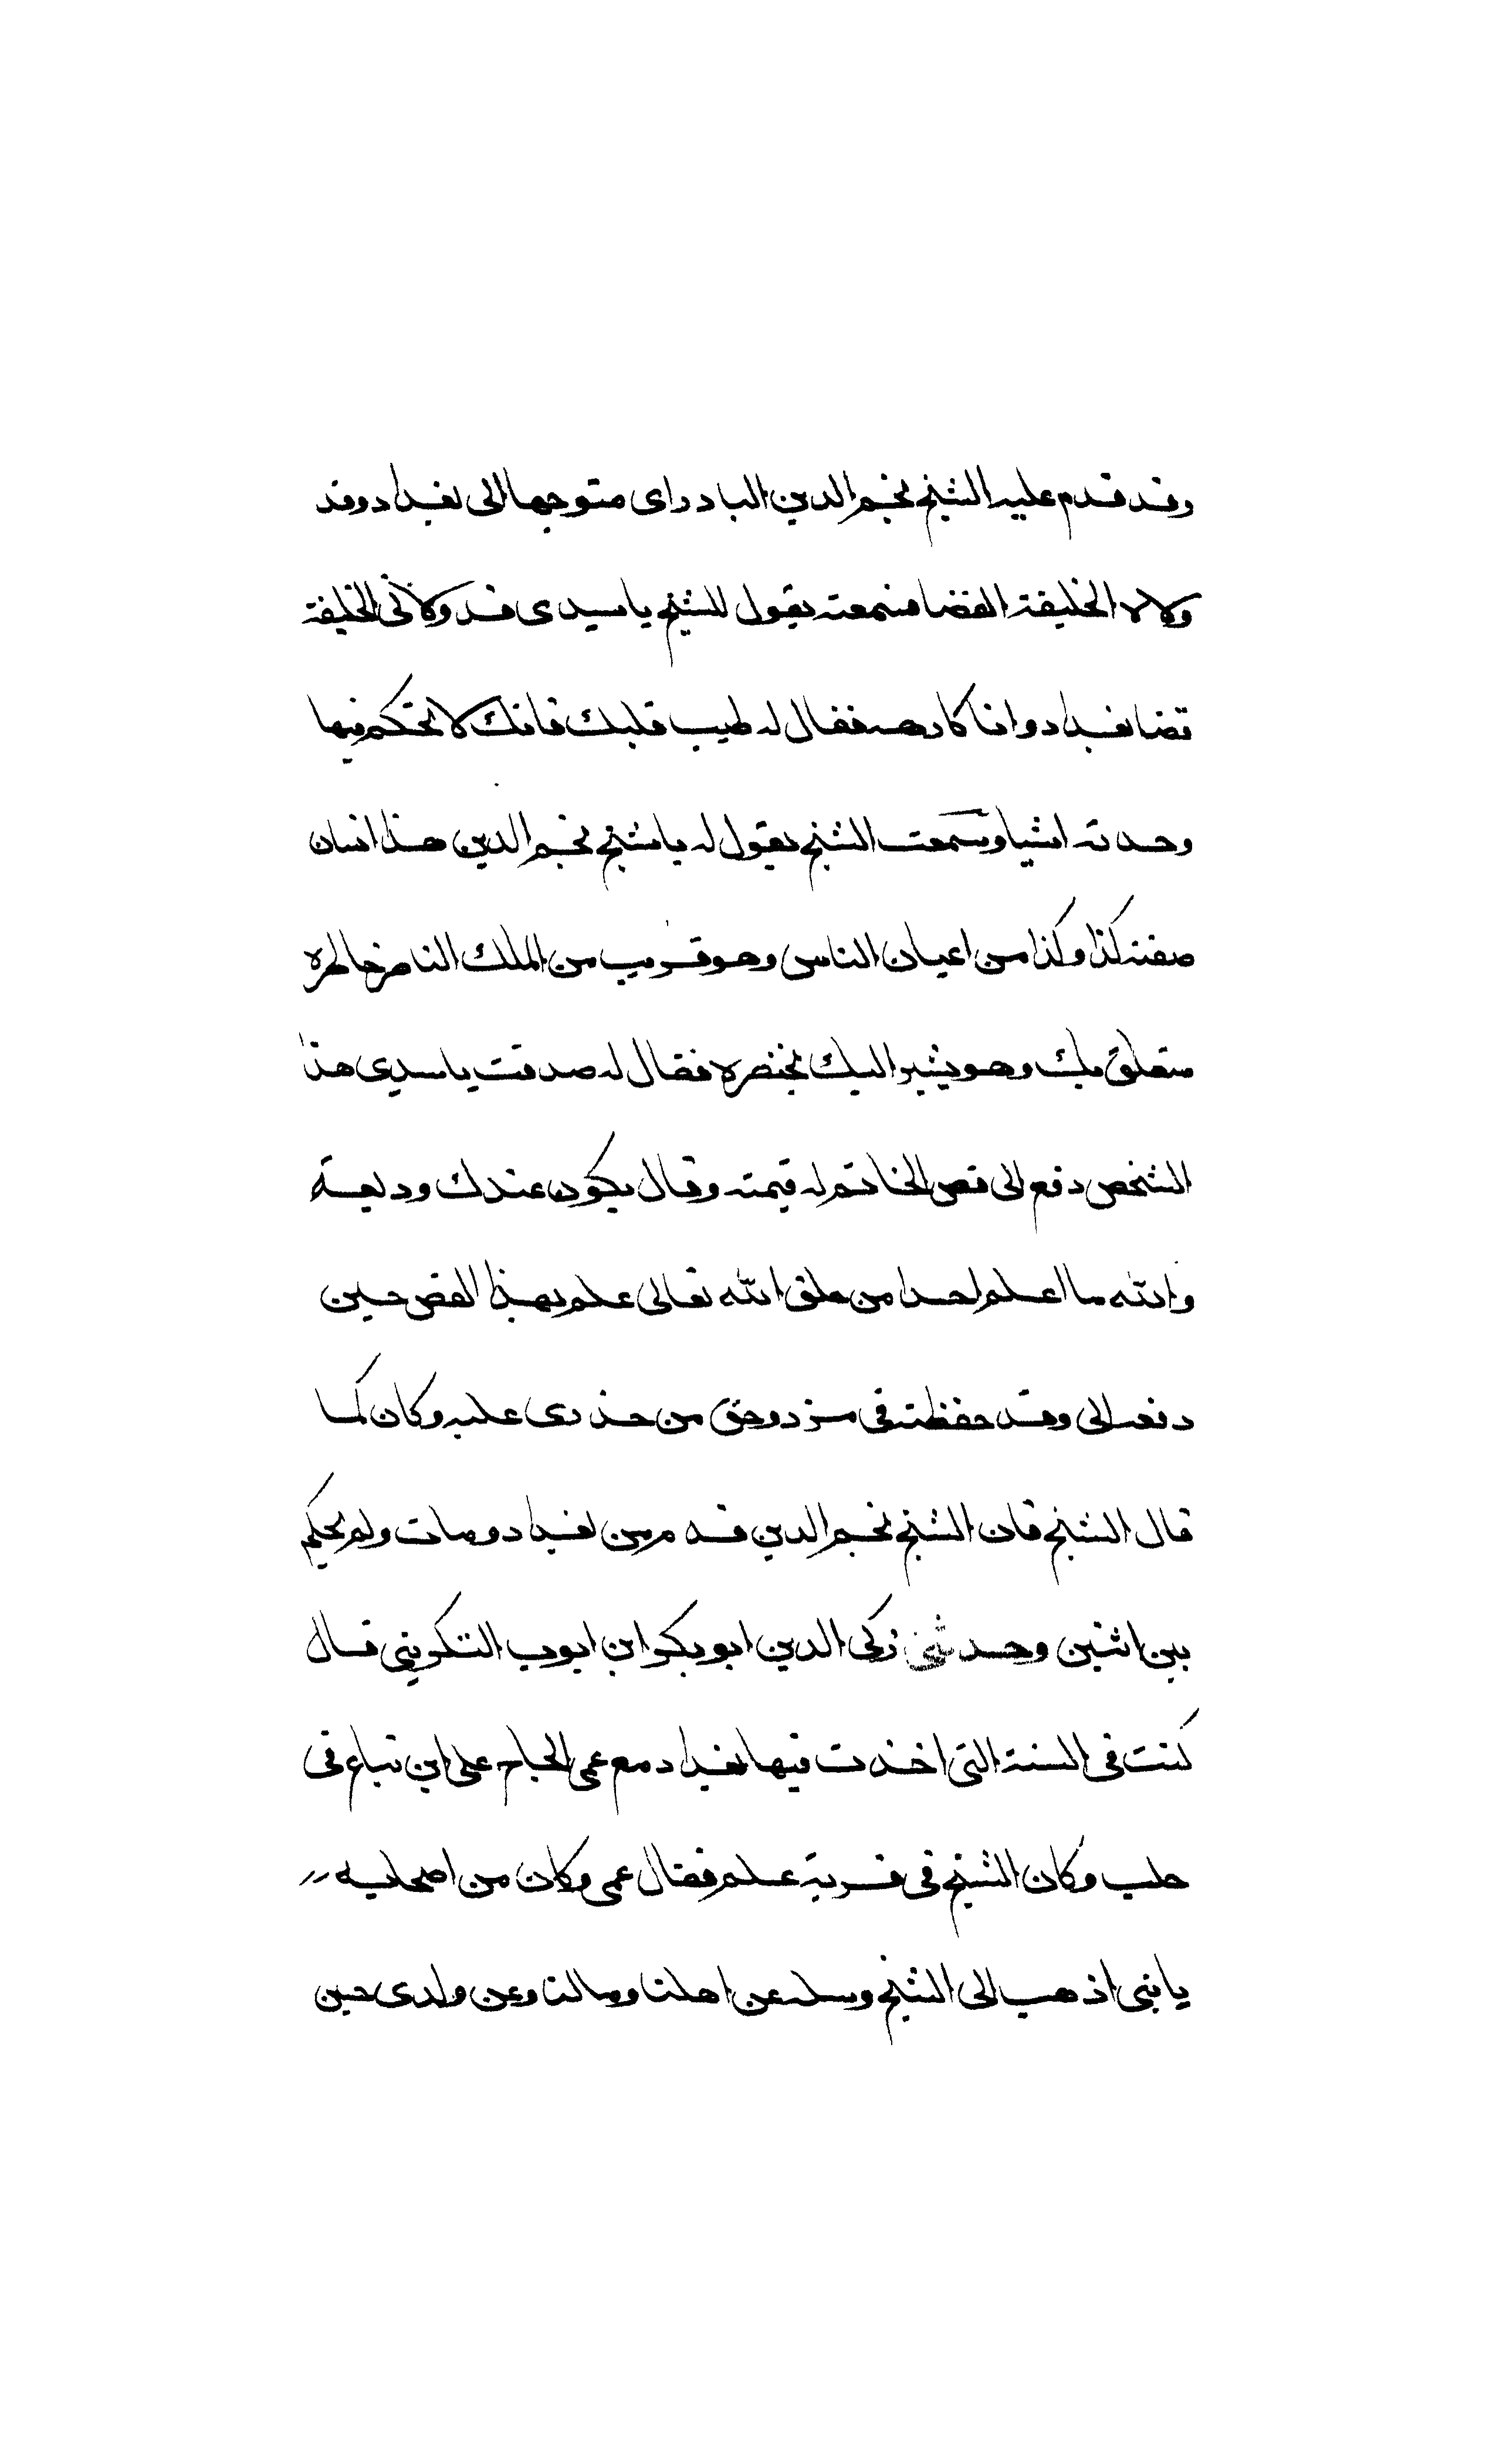 وقد قدم عليه الشيخ نجم الدين البادراى متوجها الى بغداد وقد
ولاه الخليفة القضا فسمعته يقول للشيخ ياسيدى قد ولانى الخليفة
قضا بغداد وانا كارهه فقال له طيب قلبك فانك لا تحكم فيها
وحدثه اشيا وسمعت الشيخ يقول له ياشيخ نجم الدين هذا انسان
صفته كذا وكذا من اعيان الناس وهو قريب من الملك الناصر خاطره
متعلق بك وهو يشير اليك بخنصره فقال له صدقت ياسيدى هذا
الشخص دفع الى فص الخاتم له قيمته وقال يكون عندك وديعة
والله ما اعلم احدا من خلق الله تعالى علم بهذا الفص حين
دفعه الى وقد حفظته فى مزدوجتى من حذرى عليه وكان كما
قال الشيخ فان الشيخ نجم الدين قدم من بغداد ومات ولم يحكم
بين اثنين وحدثنى زكى الدين ابو بكر ابن ايوب التكريتى قال
كنت فى السنة التى اخذت فيها بغداد مع عمى الحاج على ابن تباع فى
حلب وكان الشيخ فى قرية علم فقال عمى وكان من اصحابه
يابنى اذهب الى الشيخ وسله عن اهلنا ومالنا وعن ولدى حين